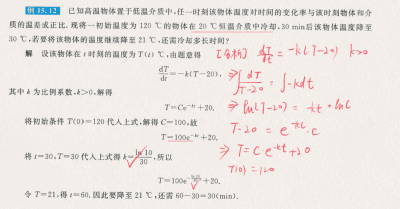 例 15.12 已知高温物体置于低温介质中,任一时刻该物体温度对时间的变化率与该时刻物体和介
质的温差成正比.现将一初始温度为 120 ℃的物体在 20 ℃恒温介质中冷却,30 min后该物体温度降至
30 ℃,若要将该物体的温度继续降至 21 ℃,还需冷却多长时间?
解 设该物体在 t 时刻的温度为 T(t) ℃,由题意得
dT/dt = −k(T−20),
其中 k 为比例系数,k>0,解得
T=Ce^{-kt}+20.
将初始条件 T(0)=120 代入上式,解得 C=100,故
T=100e^{-kt}+20,
将 t=30,T=30 代入上式得 k=ln 10/30,所以
T=100e^{-(ln 10/30)t}+20.
令 T=21,得 t=60,因此要降至 21 ℃,还需 60−30=30(min).
[分析] dT/dt = -k(T-20) k>0
⇒ ∫dT/(T-20) = ∫-kdt
⇒ ln(T-20) = -kt + lnC
T-20 = e^{-kt}·C
⇒ T = C·e^{-kt}+20
T(0)=120